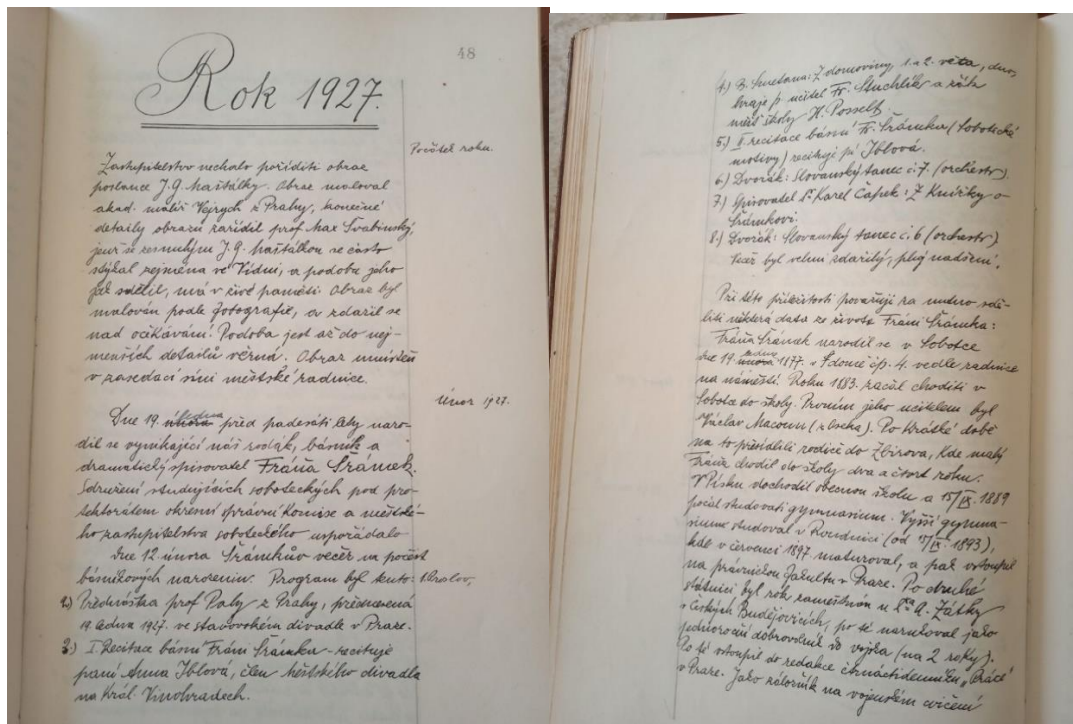 48
Rok 1927.
Počátek roku.
Zastupitelstvo nechalo poříditi obraz
poslance J. G. Maštálky. Obraz maloval
akad. malíř Vejrych z Prahy, konečné
detaily obrazu zařídil prof. Max Švabinský,
jenž se zesnulým J. G. Maštálkou se často
stýkal zejména ve Vídni, a podobu jeho
jak sdělil, má v živé paměti. Obraz byl
malován podle fotografie, a zdařil se
nad očekávání. Podoba jest až do nej-
menších detailů věrná. Obraz umístěn
v zasedací síni městské radnice.
Únor 1927.
Dne 19. ledna před padesáti lety naro-
dil se vynikající náš rodák, básník a
dramatický spisovatel Fráňa Šrámek.
Sdružení studujících soboteckých pod pro-
tektorátem okresní správní komise a městské-
ho zastupitelstva soboteckého uspořádalo
dne 12. února Šrámkův večer na počest
básníkových narozenin. Program byl tento: 1.
2.) Přednáška prof. Paly z Prahy, přednesená
19. ledna 1927. ve stavovském divadle v Praze.
3.) I. Recitace básní Fráni Šrámka - recituje
paní Anna Iblová, člen Městského divadla
na Král. Vinohradech.
4.) B. Smetana: Z domoviny, 1. a 2. věta, duo,
hraje p. učitel Fr. Stuchlík a žák
měšť. školy H. Posselt.
5.) II. recitace básní Fr. Šrámka (Sobotecké
motivy) recituje pí Iblová.
6.) Dvořák: Slovanský tanec č. 7. (orchestr).
7.) Spisovatel Dr. Karel Čapek: Z Knížky o
Šrámkovi.
8.) Dvořák: Slovanský tanec č. 6 (orchestr).
Večer byl velmi zdařilý, plný nadšení.
Při této příležitosti považuji za nutno sdě-
liti některá data ze života Fráni Šrámka:
Fráňa Šrámek narodil se v Sobotce
dne 19. ledna 1877. v domě čp. 4. vedle radnice
na náměstí. Roku 1883. začal choditi v
Sobotce do školy. Prvním jeho učitelem byl
Václav Macoun (z Oseka). Po krátké době
na to přesídlili rodiče do Zbirova, kde malý
Fráňa chodil do školy dva a čtvrt roku.
V Písku dochodil obecnou školu a 15/IX. 1889
počal studovati gymnasium. Vyšší gymna-
sium studoval v Roudnici (od 15/IX. 1893),
kde v červenci 1897 maturoval, a pak vstoupil
na právnickou fakultu v Praze. Po druhé
státnici byl rok zaměstnán u Dra A. Zátky
v Českých Budějovicích, po té narukoval jako
jednoroční dobrovolník do vojska (na 2 roky).
Po té vstoupil do redakce čtrnáctideníku „Práce“
v Praze. Jako záložník na vojenském cvičení